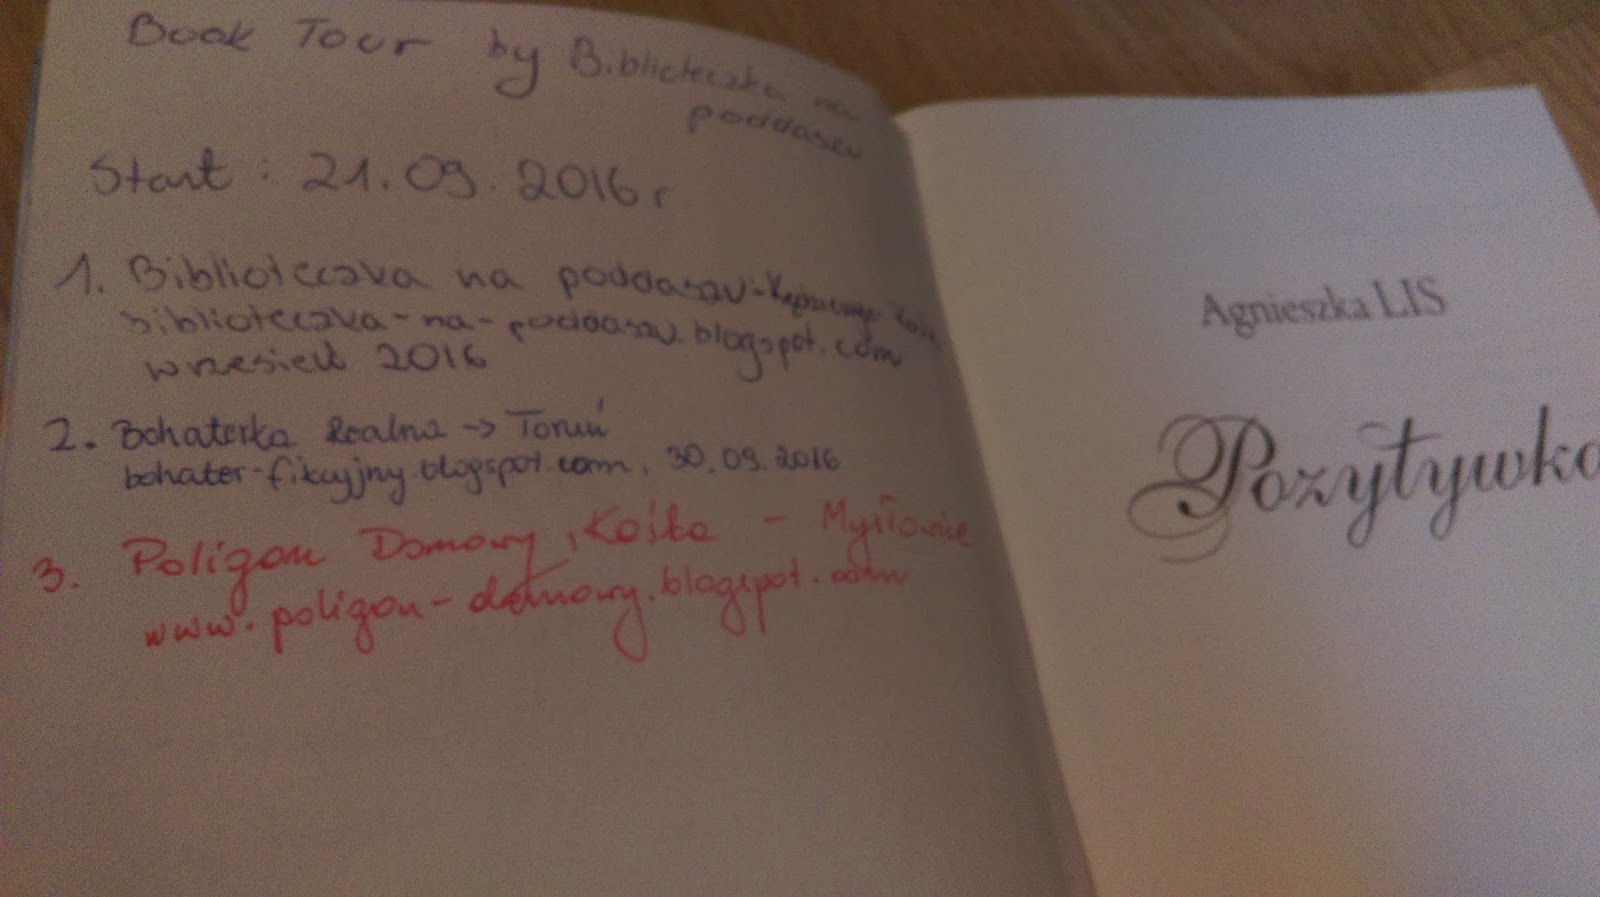 Book Tour by Biblioteczka na
poddaszu
Start : 21.09.2016 r
1. Biblioteczka na poddaszu -
biblioteczka-na-poddaszu.blogspot.com
wrzesień 2016
2. Bohaterka Realna -> Toruń
bohater-fikcyjny.blogspot.com, 30.09.2016
3. Poligon Domowy, Kośka - Mysłowice
www.poligon-domowy.blogspot.com
Agnieszka LIS
Pozytywka